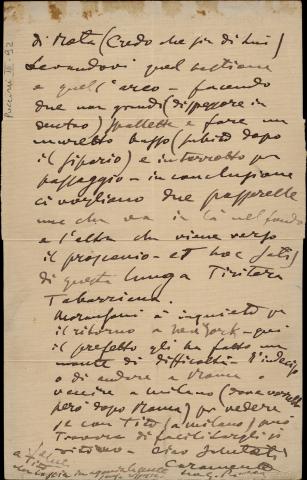 Puccini III-92
di Rota (Credo che sia di lui)
Levandovi quel bastione
e quell'arco – facendo
due non grandi (disposte in
dentro) spallette e fare un
muretto basso (subito dopo
il sipario) e interrotto pel
passaggio – in conclusione
ci vogliono due passerelle
una che va in là nel fondo
e l'altra che viene verso
il proscenio – et hoc satis
di questa lunga Tiritera
Tabarriana.
è inquieto pel
il ritorno a New York – qui
il prefetto gli ha fatto un
monte di difficoltà –
o di andare a Roma o
venire a Milano (dove
però dopo Roma) per vedere
se con Tito (a Milano) può
trovare di facilitargli il
ritorno – Ciao
Caramente
a Tito